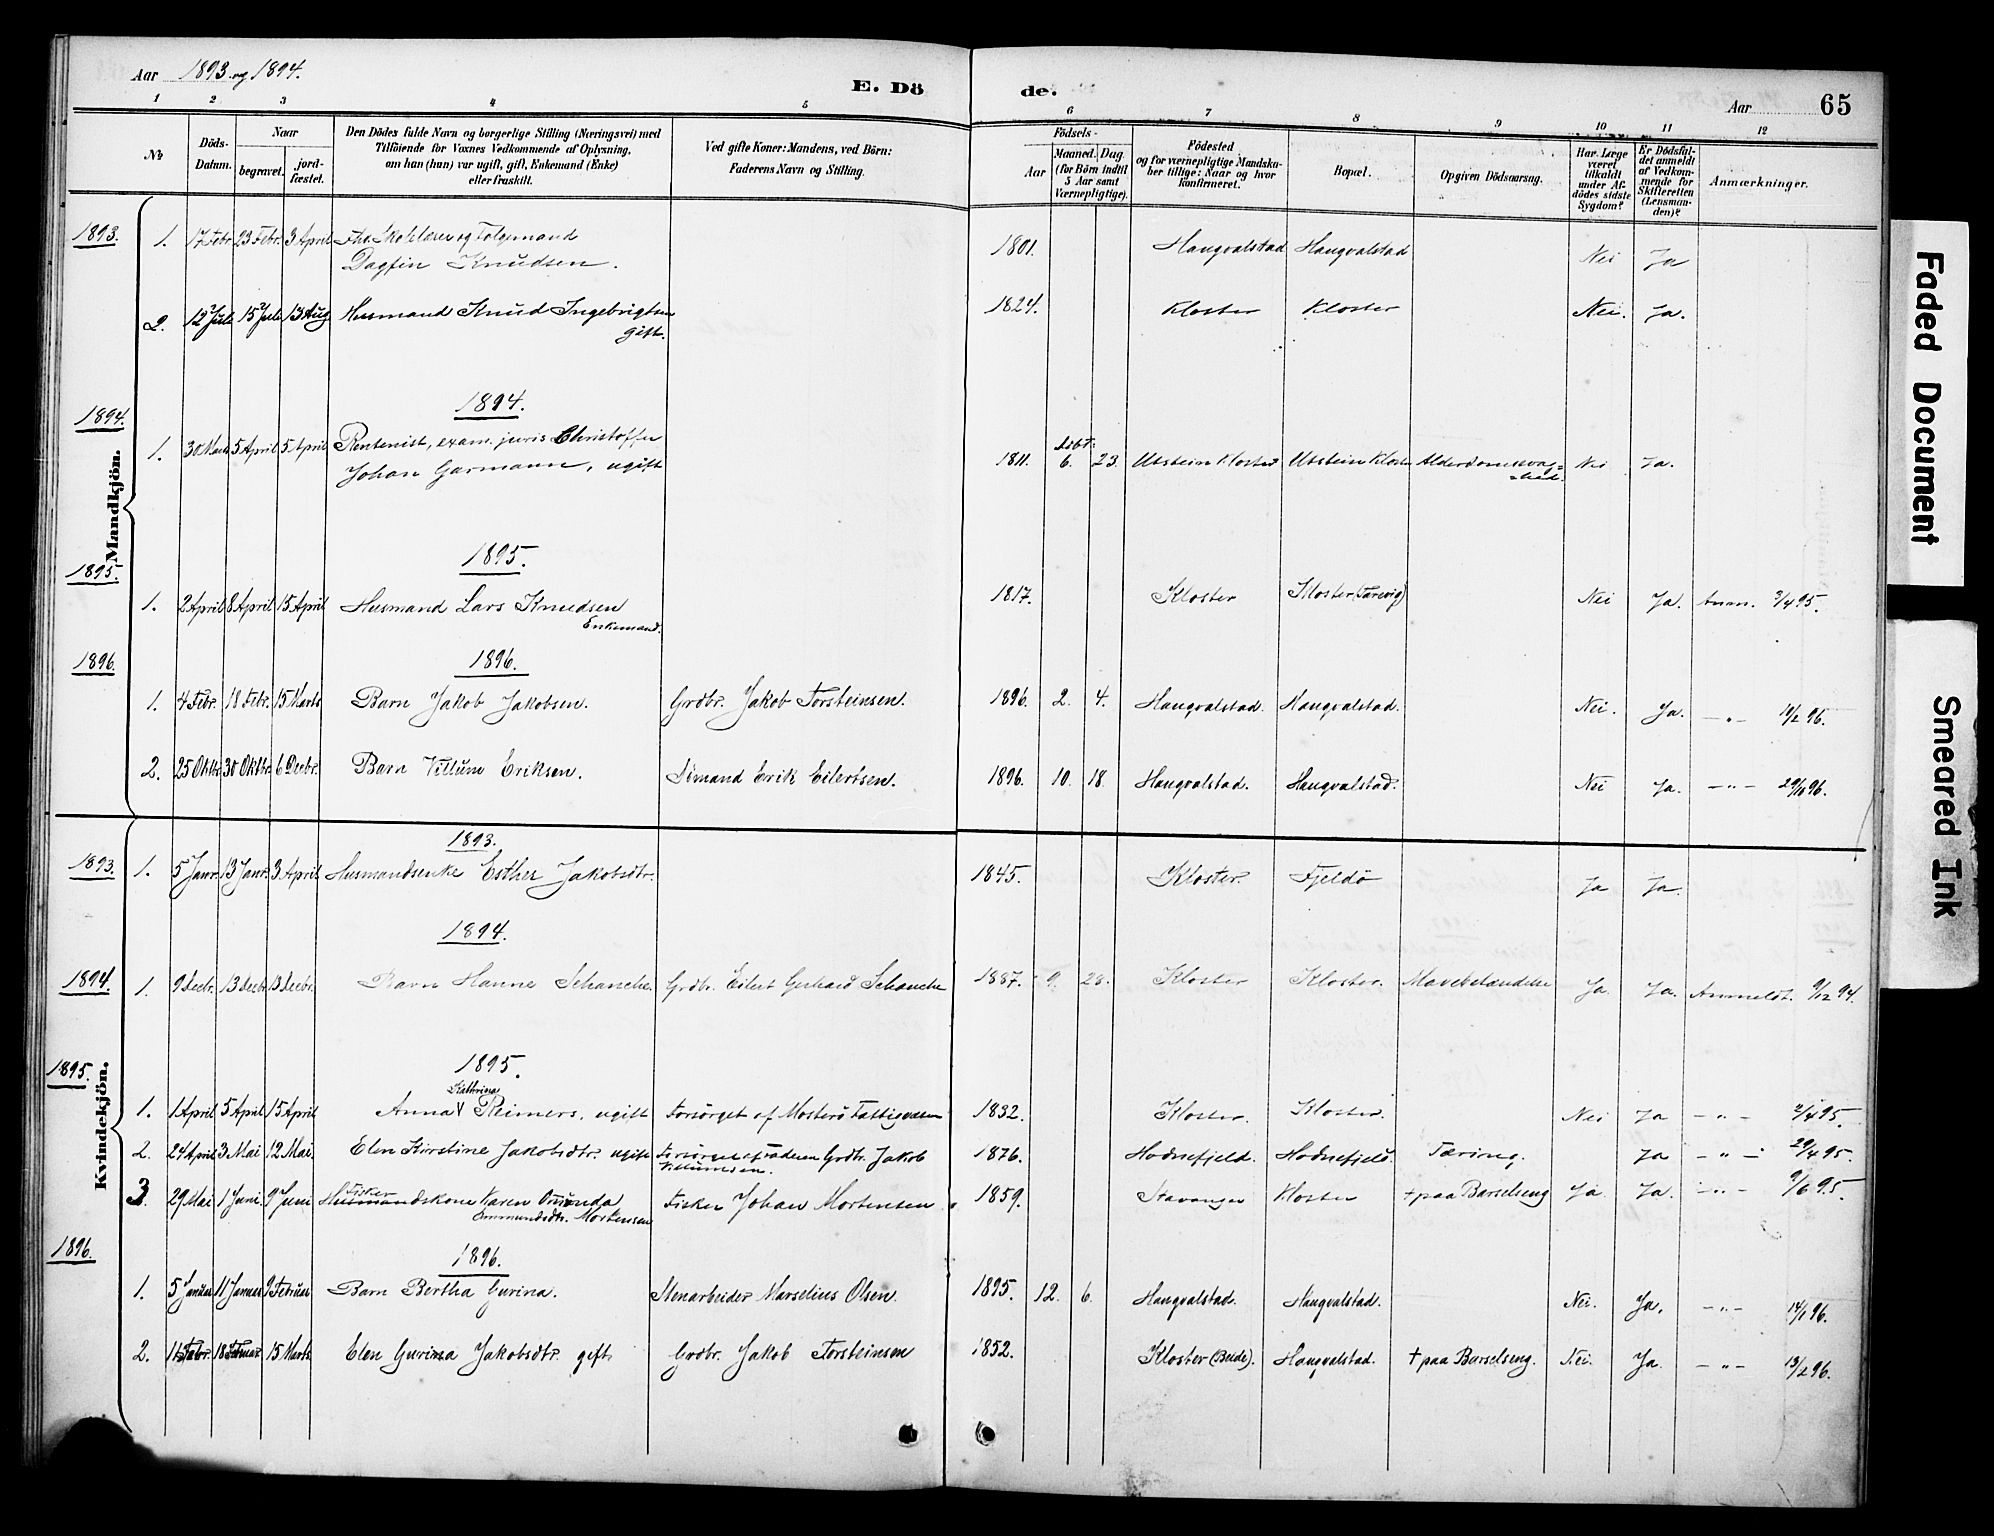 Aar 1893 og 1894.
E. Dö
de.
Aar
65
1 2 3 4 5 6 7 8 9 10 11 12
No
Döds-Datum.
Naar
begravet.
jord-fæstet.
Den Dödes fulde Navn og borgerlige Stilling (Næringsvei) med
Tilföiende for Voxnes Vedkommende af Oplysning,
om han (hun) var ugift, gift, Enkemand (Enke)
eller fraskilt.
Ved gifte Koner: Mandens, ved Börn:
Faderens Navn og Stilling.
Födsels-
Aar
Maaned. Dag.
(for Börn indtil
5 Aar samt
Værnepligtige).
Födested
og for værnepligtige Mandska-
ber tillige: Naar og hvor
konfirmeret.
Bopæl.
Opgiven Dödsaarsag.
Har Læge
været
tilkaldt
under Af-
dödes sidste
Sygdom?
Er Dödsfal-
det anmeldt
af Vedkom-
mende for
Skifteretten
(Lensman-
den)?
Anmærkninger.
Mandkjön.
1893.
1. 17 Febr. 23 Febr. 3 April Fhv. Skolelærer og Folgemand 1801. Haugvalstad Haugvalstad Nei Ja
Dagfin Knudsen.
2. 12 Juli 15 Juli 13 Aug Husmand Knud Ingebrigtsen 1824. Kloster Kloster Nei. Ja.
gift.
1894.
1894.
1. 30 Marts 5 April 5 April Rentenist, exam. juris Christoffer
Johan Garmann, ugift 1811. 6. 23. Utstein Kloster Utstein Kloster Alderdomssvag=
=hed. Nei Ja.
1895.
1895.
1. 2 April 8 April 15 April Husmand Lars Knudsen 1817. Kloster Kloster (Tarevig) Nei Ja. Anm. 3/4 95.
Enkemand.
1896.
1896.
1. 4 Febr. 18 Febr. 15 Marts Barn Jakob Jakobsen. Grdbr. Jakob Torsteinsen. 1896. 2. 4. Haugvalstad. Haugvalstad. Nei. Ja. —"— 14/2 96.
2. 25 Oktbr. 30 Oktbr. 6 Decbr. Barn Villum Eriksen. Sømand Erik Eilertsen. 1896. 10. 18. Haugvalstad. Haugvalstad. Nei Ja. —"— 29/10 96.
Kvindekjön.
1893.
1893.
1. 5 Janr. 13 Janr. 3 April. Husmandsenke Esther Jakobsdtr. 1845. Kloster. Fjeldö Ja Ja.
1894.
1894.
1. 9 Decbr. 13 Decbr. 13 Decbr. Barn Hanne Schanche Grdbr. Eilert Gerhard Schanche 1887. 9. 28. Kloster Kloster. Mavebetændelse Ja. Ja. Anmeldt. 9/12 94.
1895.
1895.
Kathrina
1. 1 April 5 April 15 April Anna V Reimers, ugift Forsörget af Mosterö Fattigvæsen 1832. Kloster. Kloster. Nei Ja —"— 2/4 95.
2. 24 April 3 Mai 12 Mai. Elen Kirstine Jakobsdtr. ugift Forsörget af Faderen Grdbr. Jakob
Villumsen. 1876. Hodnefjeld. Hodnefjeld. Tæring. Ja —"— 29/4 95.
Fisker
3. 29 Mai 1 Juni. 9 Juni Husmandskone Karen Osmunda Fisker Johan Mortensen 1859. Stavanger Kloster + paa Barselseng Ja. Ja. —"— 9/6 95.
Ommundsdtr. Mortensen
1896.
1896.
1. 5 Januar 11 Januar 9 Februar Barn Bertha Gurina. Stenarbeider Marselius Olsen. 1895. 12. 6. Haugvalstad. Haugvalstad. Nei. Ja. —"— 14/1 96.
2. 11 Febr. 18 Februar 15 Marts Elen Gurina Jakobsdtr. gift. Grdbr. Jakob Torsteinsen 1852. Kloster (Beide). Haugvalstad. + paa Barselseng. Nei. Ja. —"— 13/2 96.
Faded Document
Smeared Ink